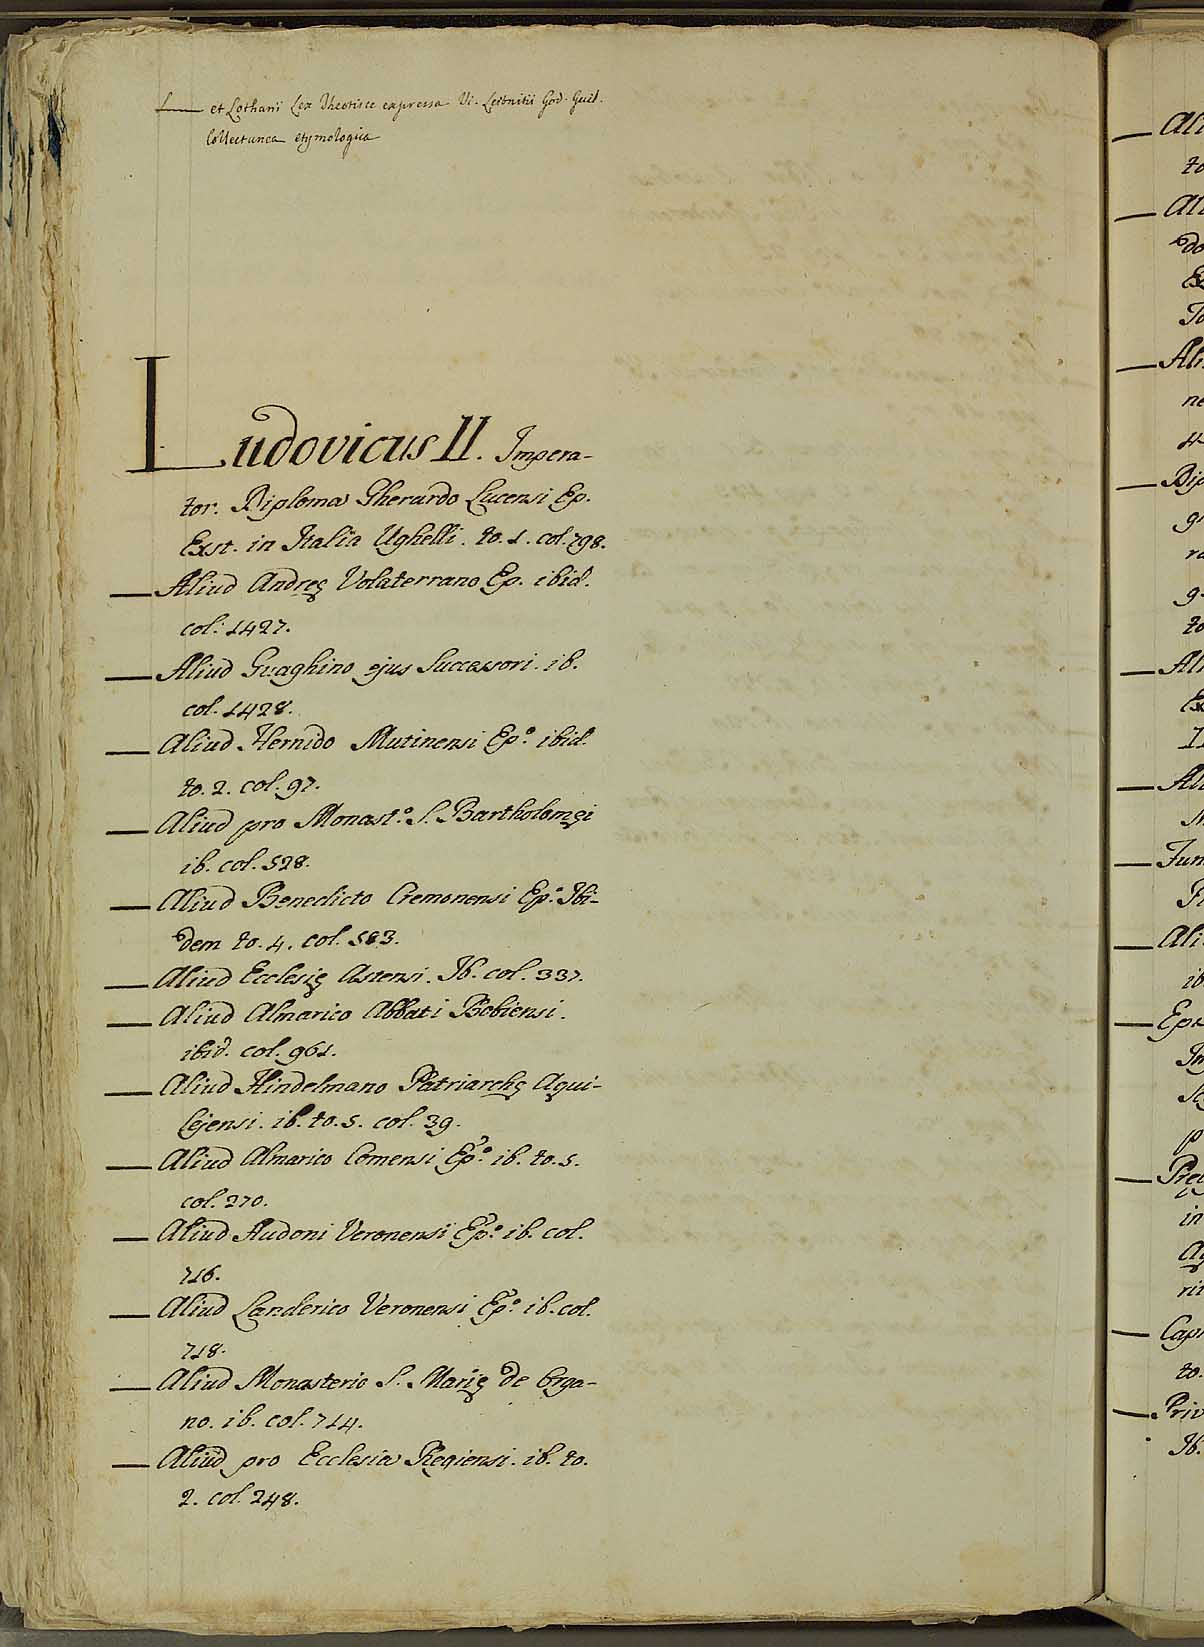 L—— et Lotharii Lex Theotisce expressa Vi. Leibnitii God. Guil.
Collectanea etymologica
Ludovicus II. Impera-
tor. Diploma Gherardo Lucensi Ep.
Exst. in Italia Ughelli. to. 1. col. 798.
— Aliud Andreę Volaterrano Ep. ibid.
col. 1427.
— Aliud Guaghino ejus Successori. ib.
col. 1428.
— Aliud Hernido Mutinensi Ep.º ibid.
to. 2. col. 97.
— Aliud pro Monast.º S. Bartholomęi
ib. col. 528.
— Aliud Benedicto Cremonensi Ep.º Ibi-
dem to. 4. col. 583.
— Aliud Ecclesię Astensi. Ib. col. 337.
— Aliud Almarico Abbati Bobiensi.
ibid. col. 961.
— Aliud Hindelmano Patriarchę Aqui-
lejensi. ib. to. 5. col. 39.
— Aliud Almarico Comensi Ep.º ib. to. 5.
col. 270.
— Aliud Audoni Veronensi Ep.º ib. col.
716.
— Aliud Landerico Veronensi Ep.º ib. col.
718.
— Aliud Monasterio S. Marię de Orga-
no. ib. col. 714.
— Aliud pro Ecclesia Regiensi. ib. to.
2. col. 248.